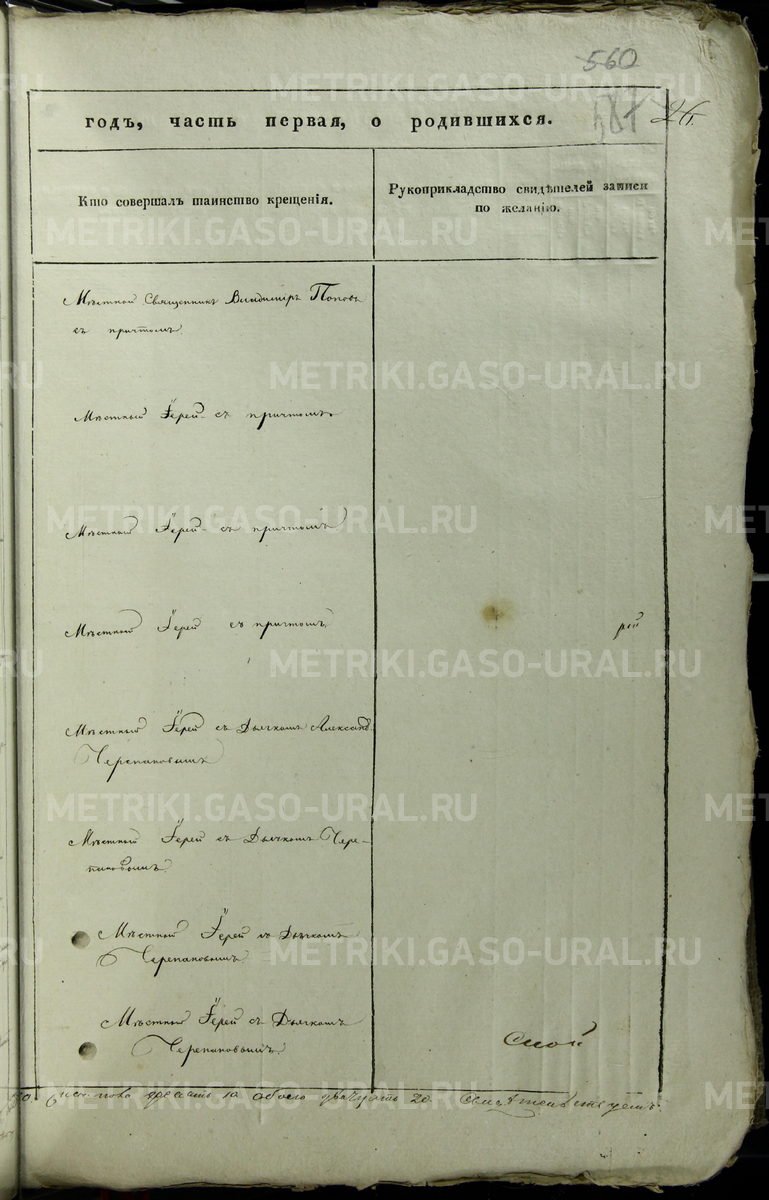 560
26
годъ, часть первая, о родившихся.
Кто совершалъ таинство крещенія.
Рукоприкладство свидѣтелей записи
по желанію.
Мѣстной Священникъ Владиміръ Поповъ
съ причтомъ
Мѣстный Іерей съ причтомъ
Мѣстный Іерей съ причтомъ
Мѣстный Іерей съ причтомъ
рей
Мѣстный Іерей съ Дьячкомъ Александ.
Черепановымъ
Мѣстный Іерей съ Дьячкомъ Чере-
пановымъ
Мѣстный Іерей съ Дьячкомъ
Черепановымъ
Мѣстный Іерей съ Дьячкомъ
Черепановымъ
десять 10 обоего двадцать 20
METRIKI.GASO-URAL.RU